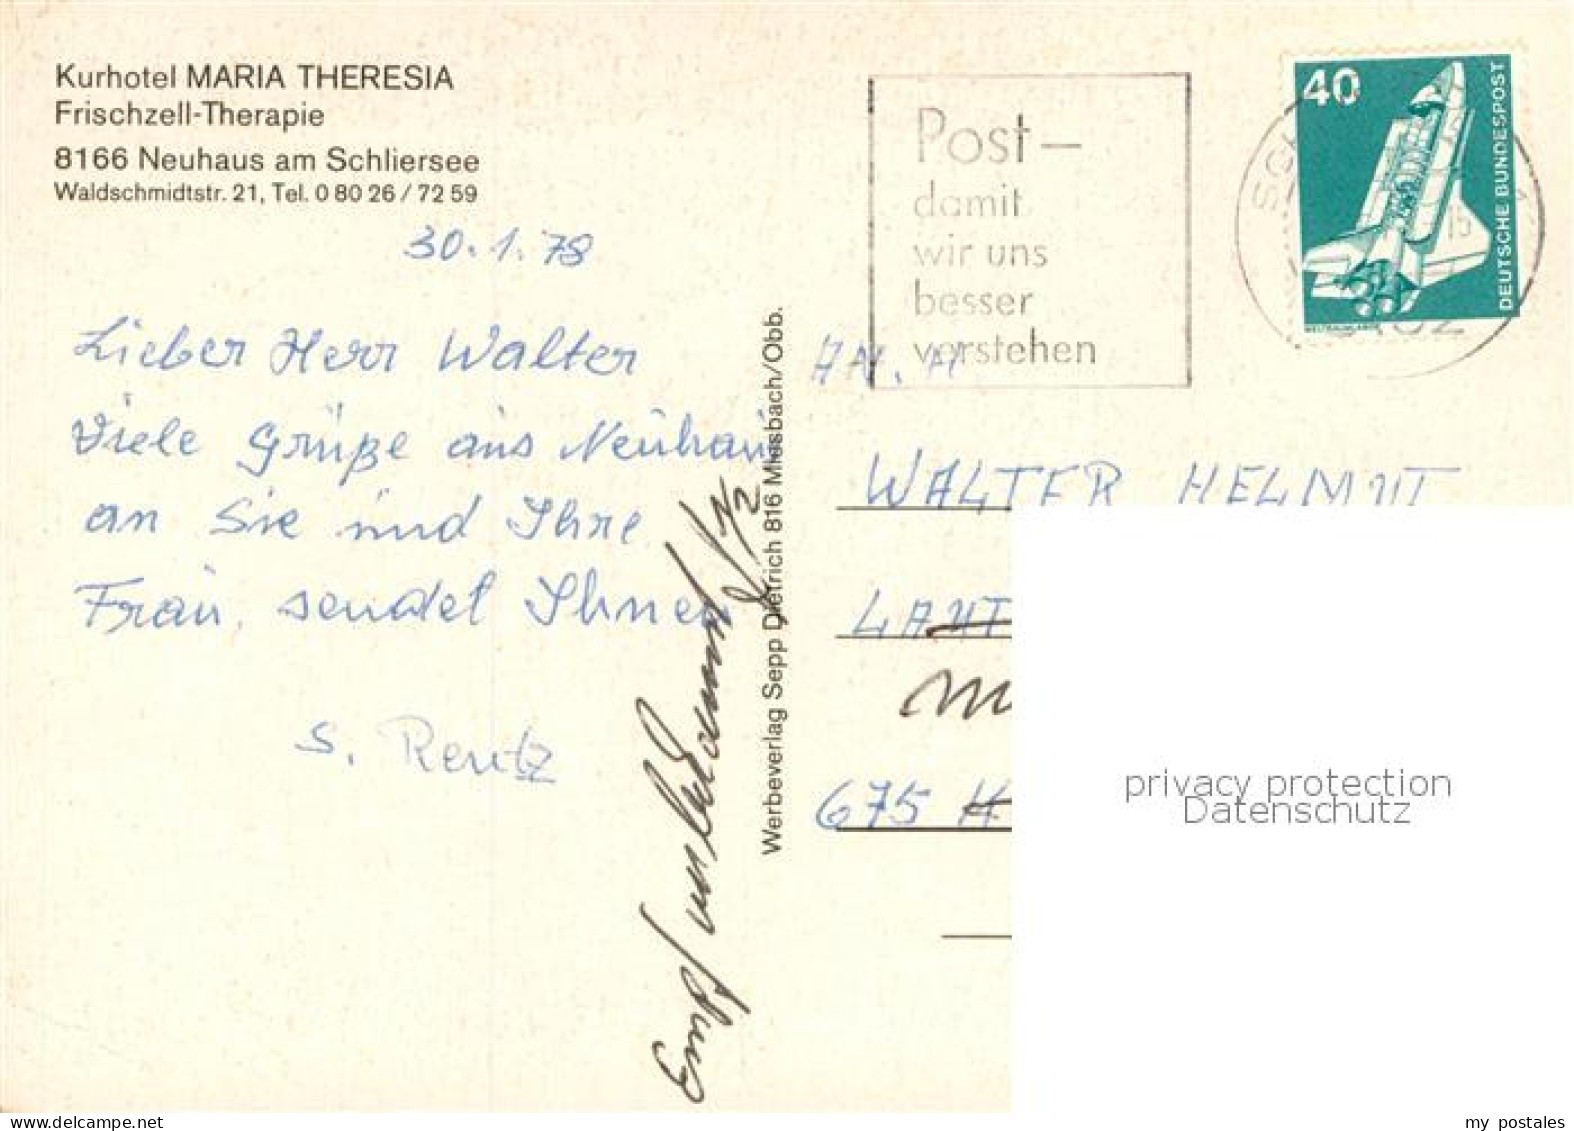 Kurhotel MARIA THERESIA
Frischzell-Therapie
8166 Neuhaus am Schliersee
Waldschmidtstr. 21, Tel. 0 80 26 / 72 59
30.1.78
Lieber Herr Walter
Viele Grüße aus Neuhaus
an Sie und Ihre
Frau, sendet Ihnen
S. Rentz
Empf unbekannt
Werbeverlag Sepp Dietrich 816 Miesbach/Obb.
Post-
damit
wir uns
besser
verstehen
40
DEUTSCHE BUNDESPOST
WELTRAUMLABOR
AN.
WALTER HELMUT
LAUT
675 H
privacy protection
Datenschutz
my postales